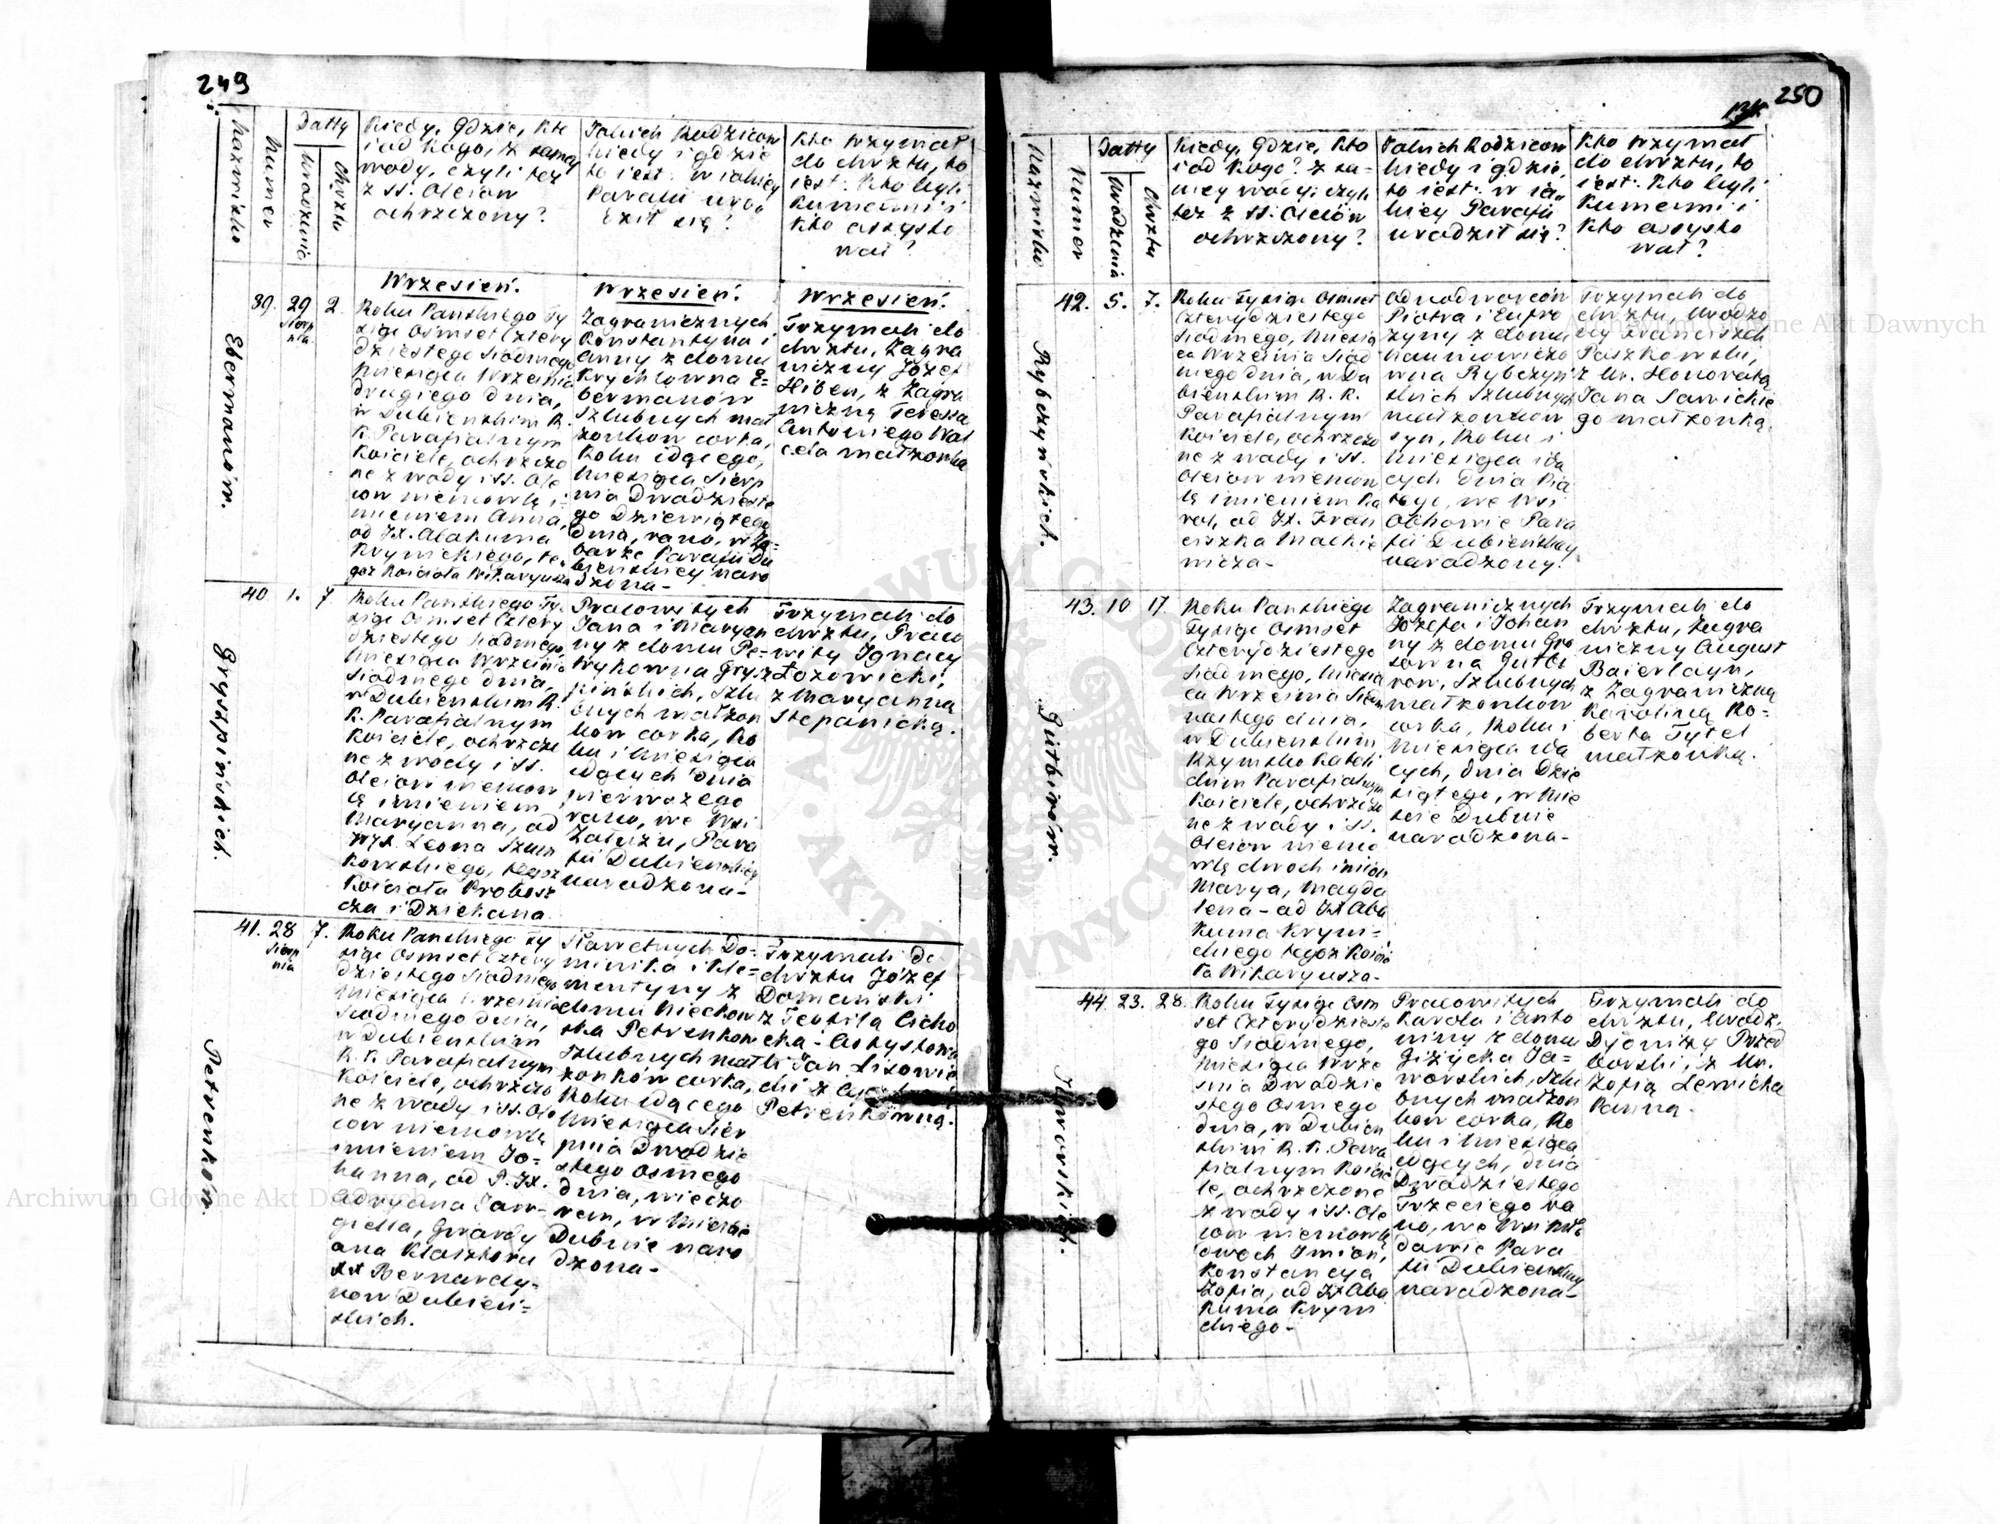 249
Nazwisko
Numer
Datty
Urodzenia
Chrztu
Kiedy, Gdzie, Kto
i od Kogo, z samej
wody, czyli też
z SS. Oleiow
ochrzczony?
Jakich Rodzicow
kiedy i gdzie
to iest: w iakiey
Parafii uro
dził się?
Kto trzymał
do chrztu, to
iest: Kto byli
Kumami i
Kto assysto
wał?
Ebermanów.
39.
29
Sierp
nia.
2.
Wrzesień.
Roku Pańskiego Ty
siąc Ośmset Cztery
dziestego Siódmego
Miesiąca Września
drugiego dnia,
w Dubienskim R.
K. Parafialnym
Kościele, ochrzczo
ne z wody i SS. Ole
iow niemowlę i-
mieniem Anna,
od JX. Abakuma
Krymickiego, te-
goż Kościoła Wikaryusza
Wrzesień.
Zagranicznych
Konstantyna i
Anny z domu
Krychlowna E-
bermanów
Szlubnych mał
żonkow corka,
Roku idącego,
Miesiąca Sierp
nia Dwadzieste
go Dziewiątego
dnia, rano, w Za-
barze Parafii Du
bienskiey naro
dzona-
Wrzesień.
Trzymali do
chrztu, Zagra
niczny Józef
Hiben, z Zagra
niczną Teressa
Antoniego Wac
cela małżonka
Gryszpińskich.
40
1.
7
Roku Pańskiego Ty-
siąc Ośmset Cztery
dziestego Siódmego,
Miesiąca Września
Siódmego dnia,
w Dubienskim R.
K. Parafialnym
Kościele, ochrzczo
ne z wody i SS.
Oleiow niemow
lę imieniem
Maryanna, od
WJX. Leona Szum
kowskiego, tegoż
Kościoła Probosz
cza i Dziekana
Pracowitych
Jana i Maryan
ny z domu Pe-
trykowna Grysz
pińskich, Szlu
bnych małżon
kow corka, Ro
ku i Miesiąca
idących dnia
pierwszego
rano, we Wsi
Załużu, Para
fii Dubienskiey
narodzona-
Trzymali do
chrztu, Praco
wity Ignacy
Łozowicki,
z Maryanną
Stepanicką.
Petrenków.
41.
28
Sierp
nia
7.
Roku Pańskiego Ty
siąc Ośmset Cztery
dziestego Siódmego
Miesiąca Września
Siódmego dnia,
w Dubienskim
R. K. Parafialnym
Kościele, ochrzczo
ne z wody i SS. Ole
iow niemowlę
imieniem Jo-
hanna, od P. JX.
Adryana Jaw-
giella, Gwardy
ana Klasztoru
XX Bernardy-
now Dubień-
skich.
Sławetnych Do-
minika i Kle-
mentyny z
domu Niechow
ska Petrenkow
Szlubnych mał
żonków corka,
Roku idącego
Miesiąca Sier
pnia Dwadzie
stego Osmego
dnia, wieczo
rem, w Mieście
Dubnie naro
dzona-
Trzymali do
chrztu Józef
Domański
z Teofila Cicho
cka - Assystowa
li Jan Lisowie
cki z
Petrenkówną.
250
Nazwisko
Numer
Datty
Urodzenia
Chrztu
Kiedy, Gdzie, Kto
i od Kogo? z sa-
mey wody; czyli
też z SS. Oleiów
ochrzczony?
Jakich Rodzicow
kiedy i gdzie,
to iest: w ia-
kiey Parafii
urodził się?
Kto trzymał
do chrztu, to
iest: Kto byli
Kumami i
Kto assysto
wał?
Rybczyńskich.
42.
5.
7.
Roku Tysiąc Ośmset
Czterydziestego
Siódmego, Miesią
ca Września Siód
mego dnia, w Du
bienskim R. K.
Parafialnym
Kościele, ochrzczo
ne z wody i SS.
Oleiow niemow
lę imieniem Ka
rol, od JX. Fran
ciszka Mackie
wicza-
Odnodworców
Piotra i Eufro
zyny z domu
Naumowiczo
wna Rybczyń
skich Szlubnych
małżonków
syn, Roku i
Miesiąca idą
cych dnia Pią
tego, we Wsi
Obhowie Para
fii Dubienskiey
narodzony.
Trzymali do
chrztu, Urodzo
ny Franciszek
Paszkowski,
z Ur. Honoratą
Jana Sawickie
go małżonką.
Gutbirów.
43.
10
17.
Roku Pańskiego
Tysiąc Osmset
Czterydziestego
Siódmego, Miesią
ca Września Siedm
nastego dnia,
w Dubienskim
Rzymsko Katoli
ckim Parafialnym
Kościele, ochrzczo
ne z wody i SS.
Oleiow niemo
wlę dwoch imion
Marya, Magda
lena - od JX Aba
kuma Krymi-
ckiego tegoż Kościo
ła Wikaryusza-
Zagranicznych
Józefa i Johan
ny z domu Gro
sowna Gutbi
row, Szlubnych
małżonkow
corka, Roku i
Miesiąca idą
cych, dnia Dzie
siątego, w Mie
ście Dubnie
narodzona-
Trzymali do
chrztu, Zagra
niczny August
Baierlayn,
z Zagraniczną
Karoliną Ro-
berta Tytel
małżonką.
Jaworskich.
44.
23.
28.
Roku Tysiąc Ośm
set Czterydzieste
go Siódmego,
Miesiąca Wrze
śnia Dwadzie
stego Osmego
dnia, w Dubien
skim R. K. Para
fialnym Koście
le, ochrzczone
z wody i SS. Ole
iow niemowlę
dwoch Imion,
Konstancya
Zofia, od JX Aba
kuma Krymi
ckiego-
Pracowitych
Karola i Anto
niny z domu
Giżycka Ja-
worskich, Szlu
bnych małżon
kow corka, Ro
ku i Miesiąca
idących, dnia
Dwadziestego
Trzeciego ra
no, we Wsi
dawie Para
fii Dubienskiey
narodzona-
Trzymali do
chrztu, Urodz.
Dyonizy Przed
borski, z Ur.
Zofią Lewicką
Panną.
Archiwum Główne Akt Dawnych
Archiwum Główne Akt Dawnych
ARCHIWUM GŁÓWNE AKT DAWNYCH